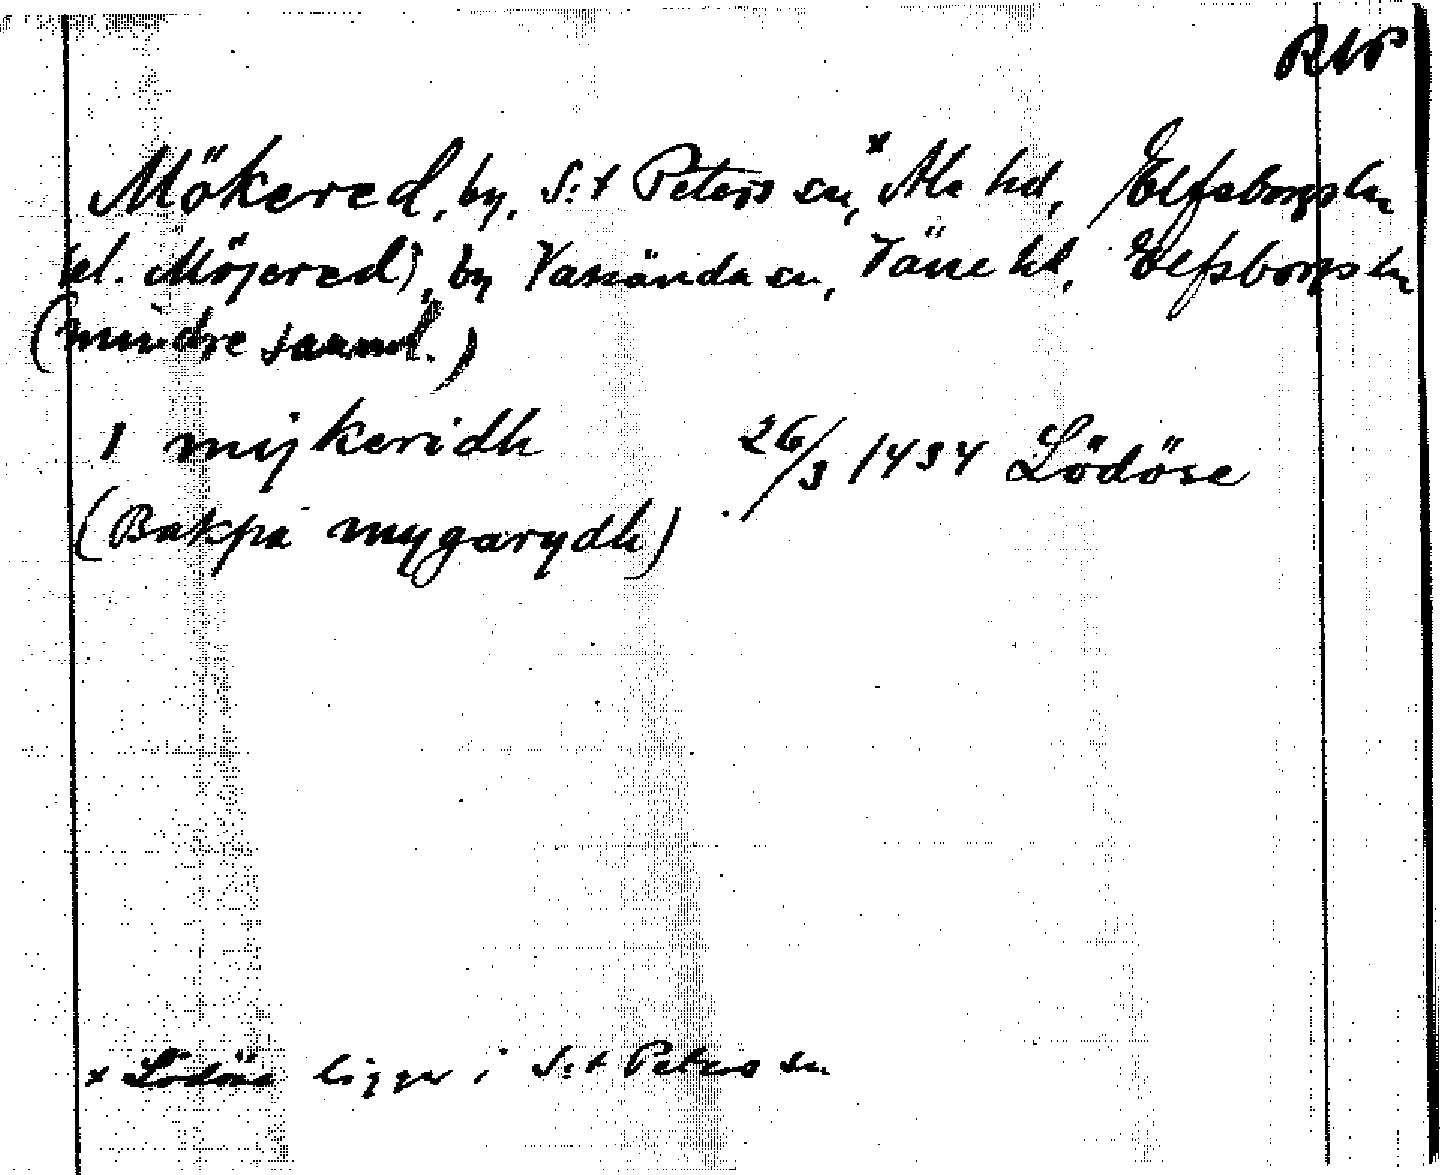 RAP
Mökered, by, S:t Peters sn, x Ale hd, Elfsborgs ln
(el. Möjered), by Vassända sn, Väne hd, Elfsborgs ln
(mindre saml.)
1 mijkeridh 26/3 1434 Lödöse
(Bakpå mygarydh)
x Lödöse ligger i S:t Peters sn